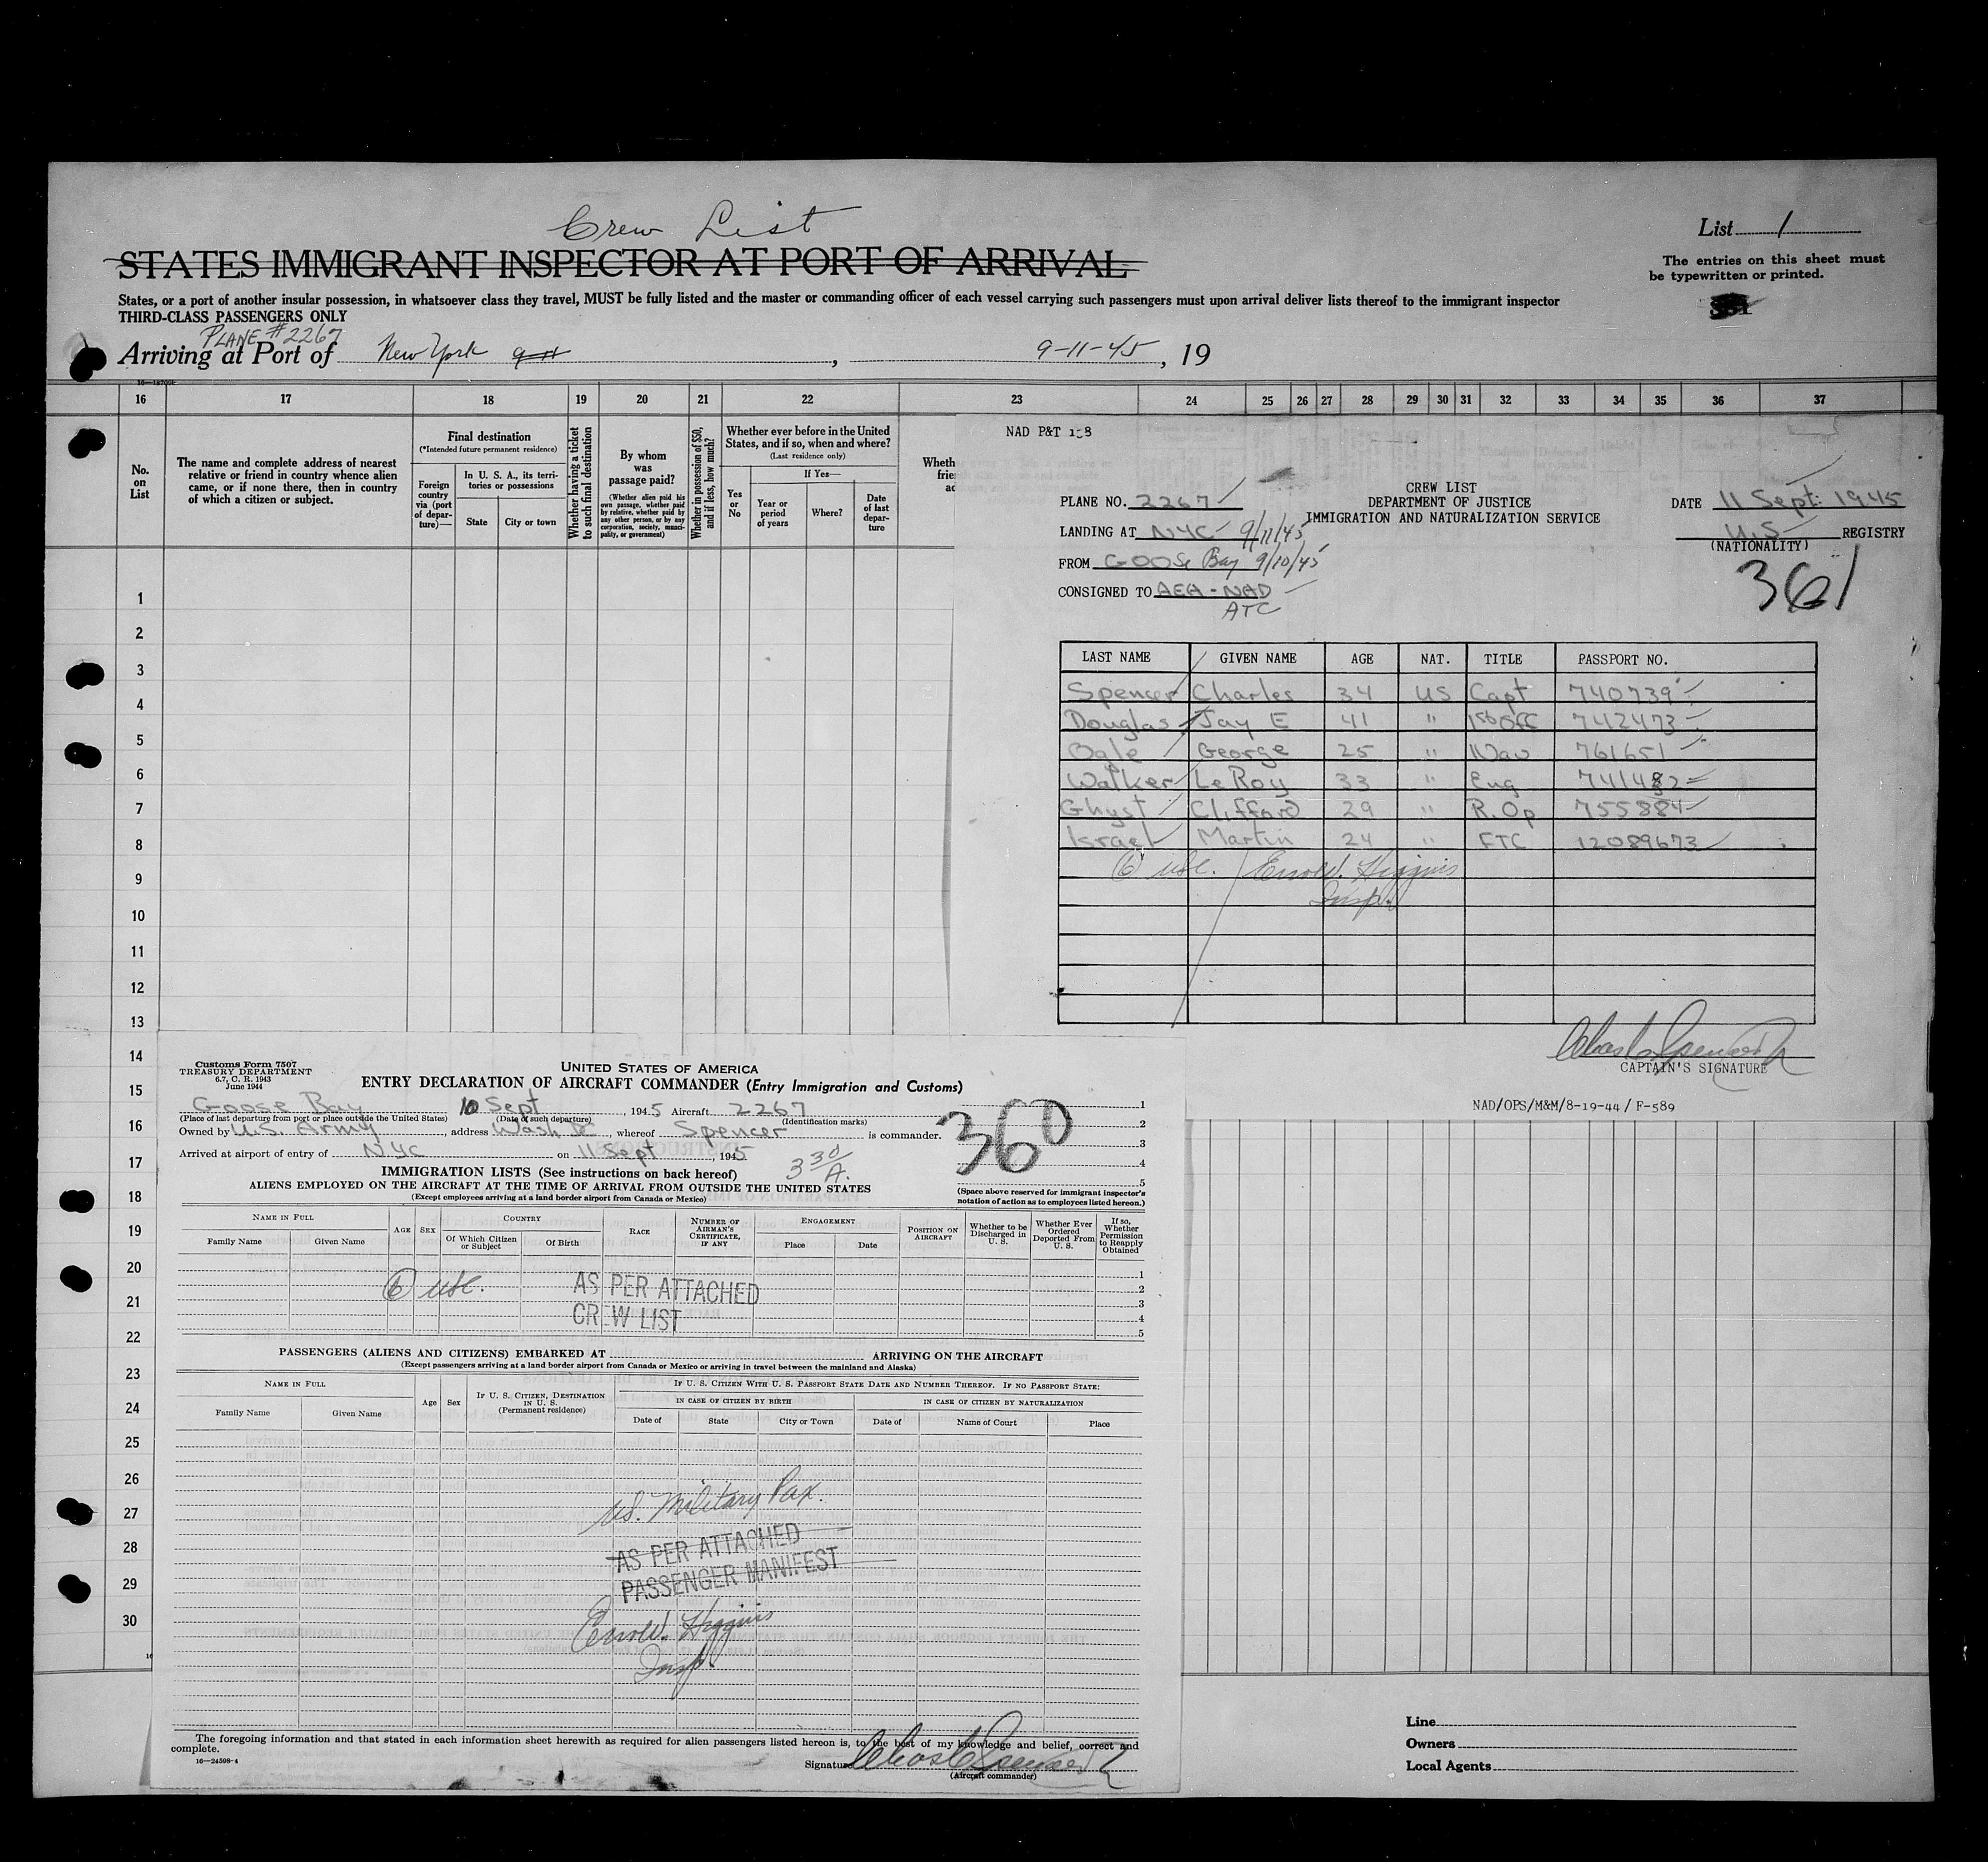 Crew List
STATES IMMIGRANT INSPECTOR AT PORT OF ARRIVAL
List 1
The entries on this sheet must
be typewritten or printed.
States, or a port of another insular possession, in whatsoever class they travel, MUST be fully listed and the master or commanding officer of each vessel carrying such passengers must upon arrival deliver lists thereof to the immigrant inspector
THIRD-CLASS PASSENGERS ONLY
PLANE #2267
Arriving at Port of New York 9-11, 9-11-45, 19
16 17 18 19 20 21 22 23 24 25 26 27 28 29 30 31 32 33 34 35 36 37
No.
on
List
The name and complete address of nearest
relative or friend in country whence alien
came, or if none there, then in country
of which a citizen or subject.
Final destination
(*Intended future permanent residence)
Foreign
country
via (port
of depar-
ture)—
In U. S. A., its terri-
tories or possessions
State
City or town
Whether having a ticket
to such final destination
By whom
was
passage paid?
(Whether alien paid his
own passage, whether paid
by relative, whether paid by
any other person, or by any
corporation, society, munici-
pality, or government)
Whether in possession of $50,
and if less, how much?
Whether ever before in the United
States, and if so, when and where?
(Last residence only)
Yes
or
No
If Yes—
Year or
period
of years
Where?
Date
of last
depar-
ture
Wheth
frie
ac
1
2
3
4
5
6
7
8
9
10
11
12
13
14
15
16
17
18
19
20
21
22
23
24
25
26
27
28
29
30
NAD P&T
PLANE NO. 2267
CREW LIST
DEPARTMENT OF JUSTICE
IMMIGRATION AND NATURALIZATION SERVICE
DATE 11 Sept. 1945
LANDING AT NYC 9/11/45
U.S. REGISTRY
(NATIONALITY)
FROM Goose Bay 9/10/45
361
CONSIGNED TO AEA - NAD
ATC
LAST NAME GIVEN NAME AGE NAT. TITLE PASSPORT NO.
Spencer Charles 34 US Capt 740739
Douglas Jay E 41 " 1st Off 742473
Bale George 25 " Nav 761651
Walker LeRoy 33 " Eng 741482
Ghyst Clifford 29 " R.Op 755884
Israel Martin 24 " FTC 12089673
6 USC. Errol W. Higgins
Insp.
Chas L Spencer
CAPTAIN'S SIGNATURE
NAD/OPS/M&M/8-19-44 / F-589
Customs Form 7507
TREASURY DEPARTMENT
6.7, C. R. 1943
June 1944
UNITED STATES OF AMERICA
ENTRY DECLARATION OF AIRCRAFT COMMANDER (Entry Immigration and Customs)
Goose Bay 10 Sept, 1945 Aircraft 2267
(Place of last departure from port or place outside the United States) (Date of such departure) (Identification marks)
Owned by U.S. Army, address Wash DC, whereof Spencer is commander.
Arrived at airport of entry of NYC on 11 Sept, 1945
360
1
2
3
4
5
IMMIGRATION LISTS (See instructions on back hereof)
3 30/A.
ALIENS EMPLOYED ON THE AIRCRAFT AT THE TIME OF ARRIVAL FROM OUTSIDE THE UNITED STATES
(Except employees arriving at a land border airport from Canada or Mexico)
(Space above reserved for immigrant inspector's
notation of action as to employees listed hereon.)
NAME IN FULL
Family Name Given Name
AGE SEX
COUNTRY
Of Which Citizen
or Subject
Of Birth
RACE
NUMBER OF
AIRMAN'S
CERTIFICATE,
IF ANY
ENGAGEMENT
Place Date
POSITION ON
AIRCRAFT
Whether to be
Discharged in
U. S.
Whether Ever
Ordered
Deported From
U. S.
If so,
Whether
Permission
to Reapply
Obtained
1
2
3
4
5
6 USC.
AS PER ATTACHED
CREW LIST
PASSENGERS (ALIENS AND CITIZENS) EMBARKED AT ARRIVING ON THE AIRCRAFT
(Except passengers arriving at a land border airport from Canada or Mexico or arriving in travel between the mainland and Alaska)
NAME IN FULL
Family Name Given Name
Age Sex
IF U. S. CITIZEN, DESTINATION
IN U. S.
(Permanent residence)
IF U. S. CITIZEN WITH U. S. PASSPORT STATE DATE AND NUMBER THEREOF. IF NO PASSPORT STATE:
IN CASE OF CITIZEN BY BIRTH
IN CASE OF CITIZEN BY NATURALIZATION
Date of State City or Town Date of Name of Court Place
US. Military Pax.
AS PER ATTACHED
PASSENGER MANIFEST
Errol W. Higgins
Insp.
The foregoing information and that stated in each information sheet herewith as required for alien passengers listed hereon is, to the best of my knowledge and belief, correct and
complete.
16—24598-4
Signature Chas L Spencer
(Aircraft commander)
Line
Owners
Local Agents